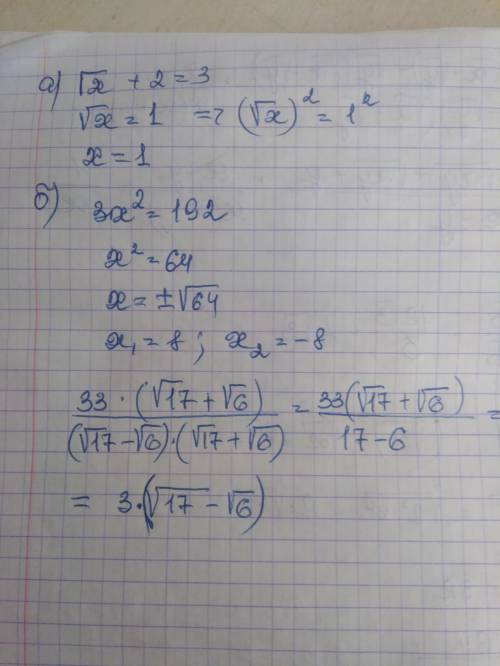 а) √x + 2 = 3
√x = 1 => (√x)² = 1²
x = 1
б) 3x² = 192
x² = 64
x = ±√64
x₁ = 8 ; x₂ = -8
33 · (√17 + √6) / (√17 - √6) · (√17 + √6) = 33(√17 + √6) / 17 - 6 =
= 3 · (√17 - √6)